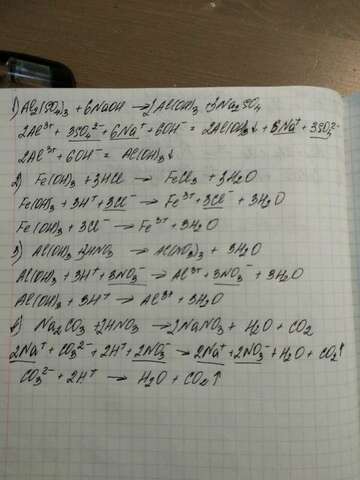 1) Al₂(SO₄)₃ + 6NaOH → 2Al(OH)₃ + 3Na₂SO₄
2Al³⁺ + 3SO₄²⁻ + 6Na⁺ + 6OH⁻ = 2Al(OH)₃↓ + 6Na⁺ + 3SO₄²⁻
2Al³⁺ 6OH⁻ = Al(OH)₃↓
2) Fe(OH)₃ + 3HCl → FeCl₃ + 3H₂O
Fe(OH)₃ + 3H⁺ + 3Cl⁻ → Fe³⁺ + 3Cl⁻ + 3H₂O
Fe(OH)₃ + 3Cl⁻ → Fe³⁺ + 3H₂O
3) Al(OH)₃ + 3HNO₃ → Al(NO₃)₃ + 3H₂O
Al(OH)₃ + 3H⁺ + 3NO₃⁻ → Al³⁺ + 3NO₃⁻ + 3H₂O
Al(OH)₃ + 3H⁺ → Al³⁺ + 3H₂O
Na₂CO₃ + 2HNO₃ → 2NaNO₃ + H₂O + CO₂
2Na⁺ + CO₃²⁻ + 2H⁺ + 2NO₃⁻ → 2Na⁺ + 2NO₃⁻ + H₂O + CO₂↑
CO₃²⁻ + 2H⁺ → H₂O + CO₂↑